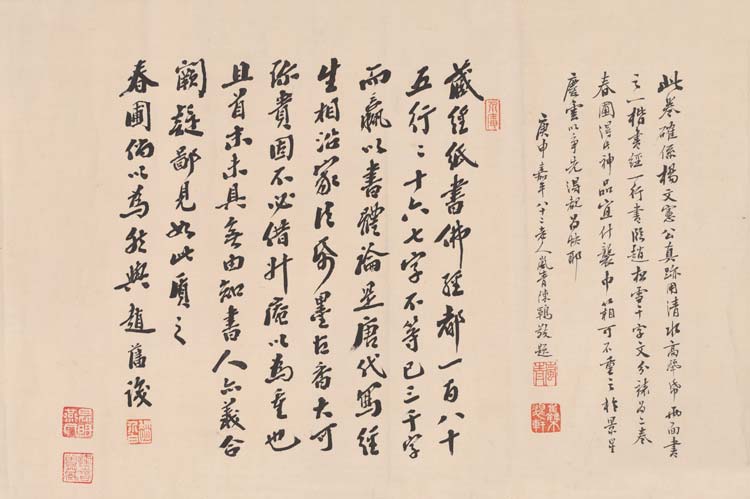 此卷確係楊文憲公真跡用清水高麗帋兩面書
之一楷書經一行書臨趙松雪千字文分裱為二卷
春圃得此神品宜什襲巾箱可不重之於景星
慶雲以爭先得覩為快耶
庚申嘉平八十二老人嵐青陳題
藏經紙書佛經都一百八十
五行〻十六七字不等已三千字
而贏以書體論是唐代寫經
生相沿家法紙墨古香大可
珍貴固不必借升庵以為重也
且首末未具無由知書人亦義合
闕疑鄙見如此質之
春圃倘以為然與 趙藩識